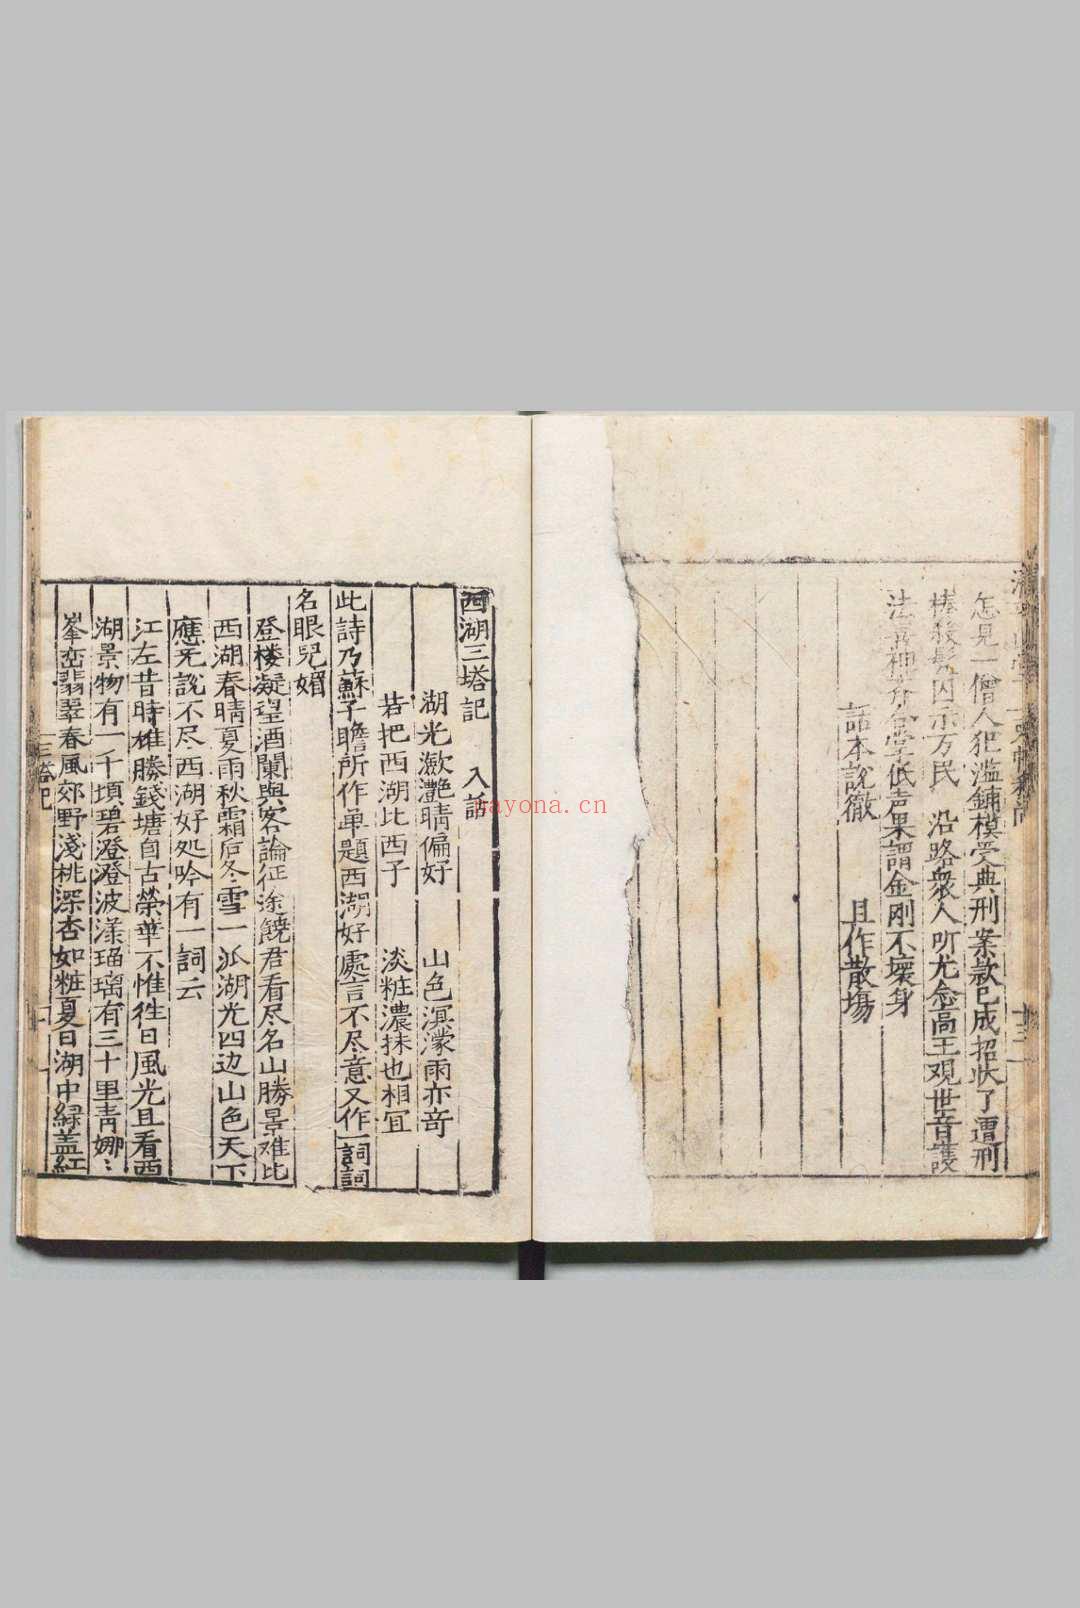 怎見一僧人犯濫鋪模受典刑案款已成招狀了遭刑
棒殺髡囚示万民　沿路衆人听尤念高王观世音護
法　神　合掌低声果謂金刚不壞身
話本說徹　且作散塲
西湖三塔記　入話
湖光瀲灔晴偏好　山色溟濛雨亦竒
若把西湖比西子　淡粧濃抹也相冝
此詩乃蘇子瞻所作单題西湖好處言不尽意又作一詞詞
名眼児媚
登楼凝望酒闌與客論征途饒君看尽名山勝景难比
西湖春晴夏雨秋霜后冬雪一派湖光四边山色天下
應无說不尽西湖好処吟有一詞云
江左昔時雄勝錢塘自古榮華不惟徃日風光且看西
湖景物有一千頃碧澄澄波漾瑠璃有三十里青娜〻
峯峦翡翠春風郊野淺桃深杏如粧夏日湖中緑盖紅
三塔記
nayona.cn